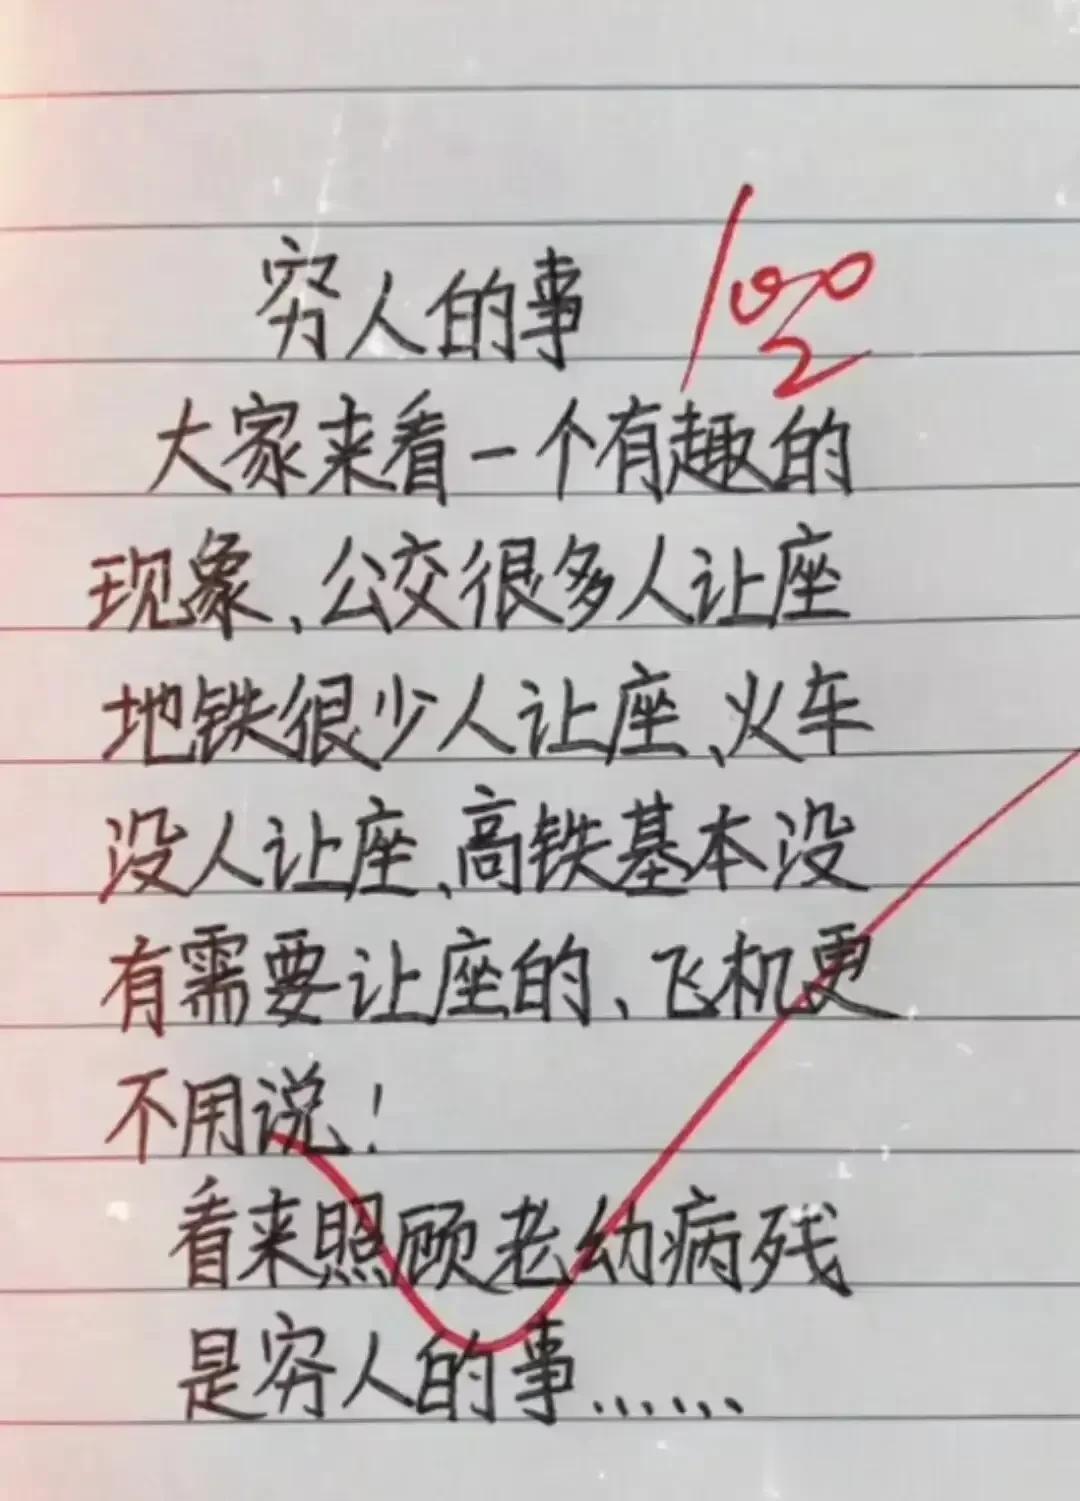 穷人的事
100
大家来看一个有趣的
现象、公交很多人让座
地铁很少人让座、火车
没人让座、高铁基本没
有需要让座的、飞机更
不用说！
看来照顾老幼病残
是穷人的事......